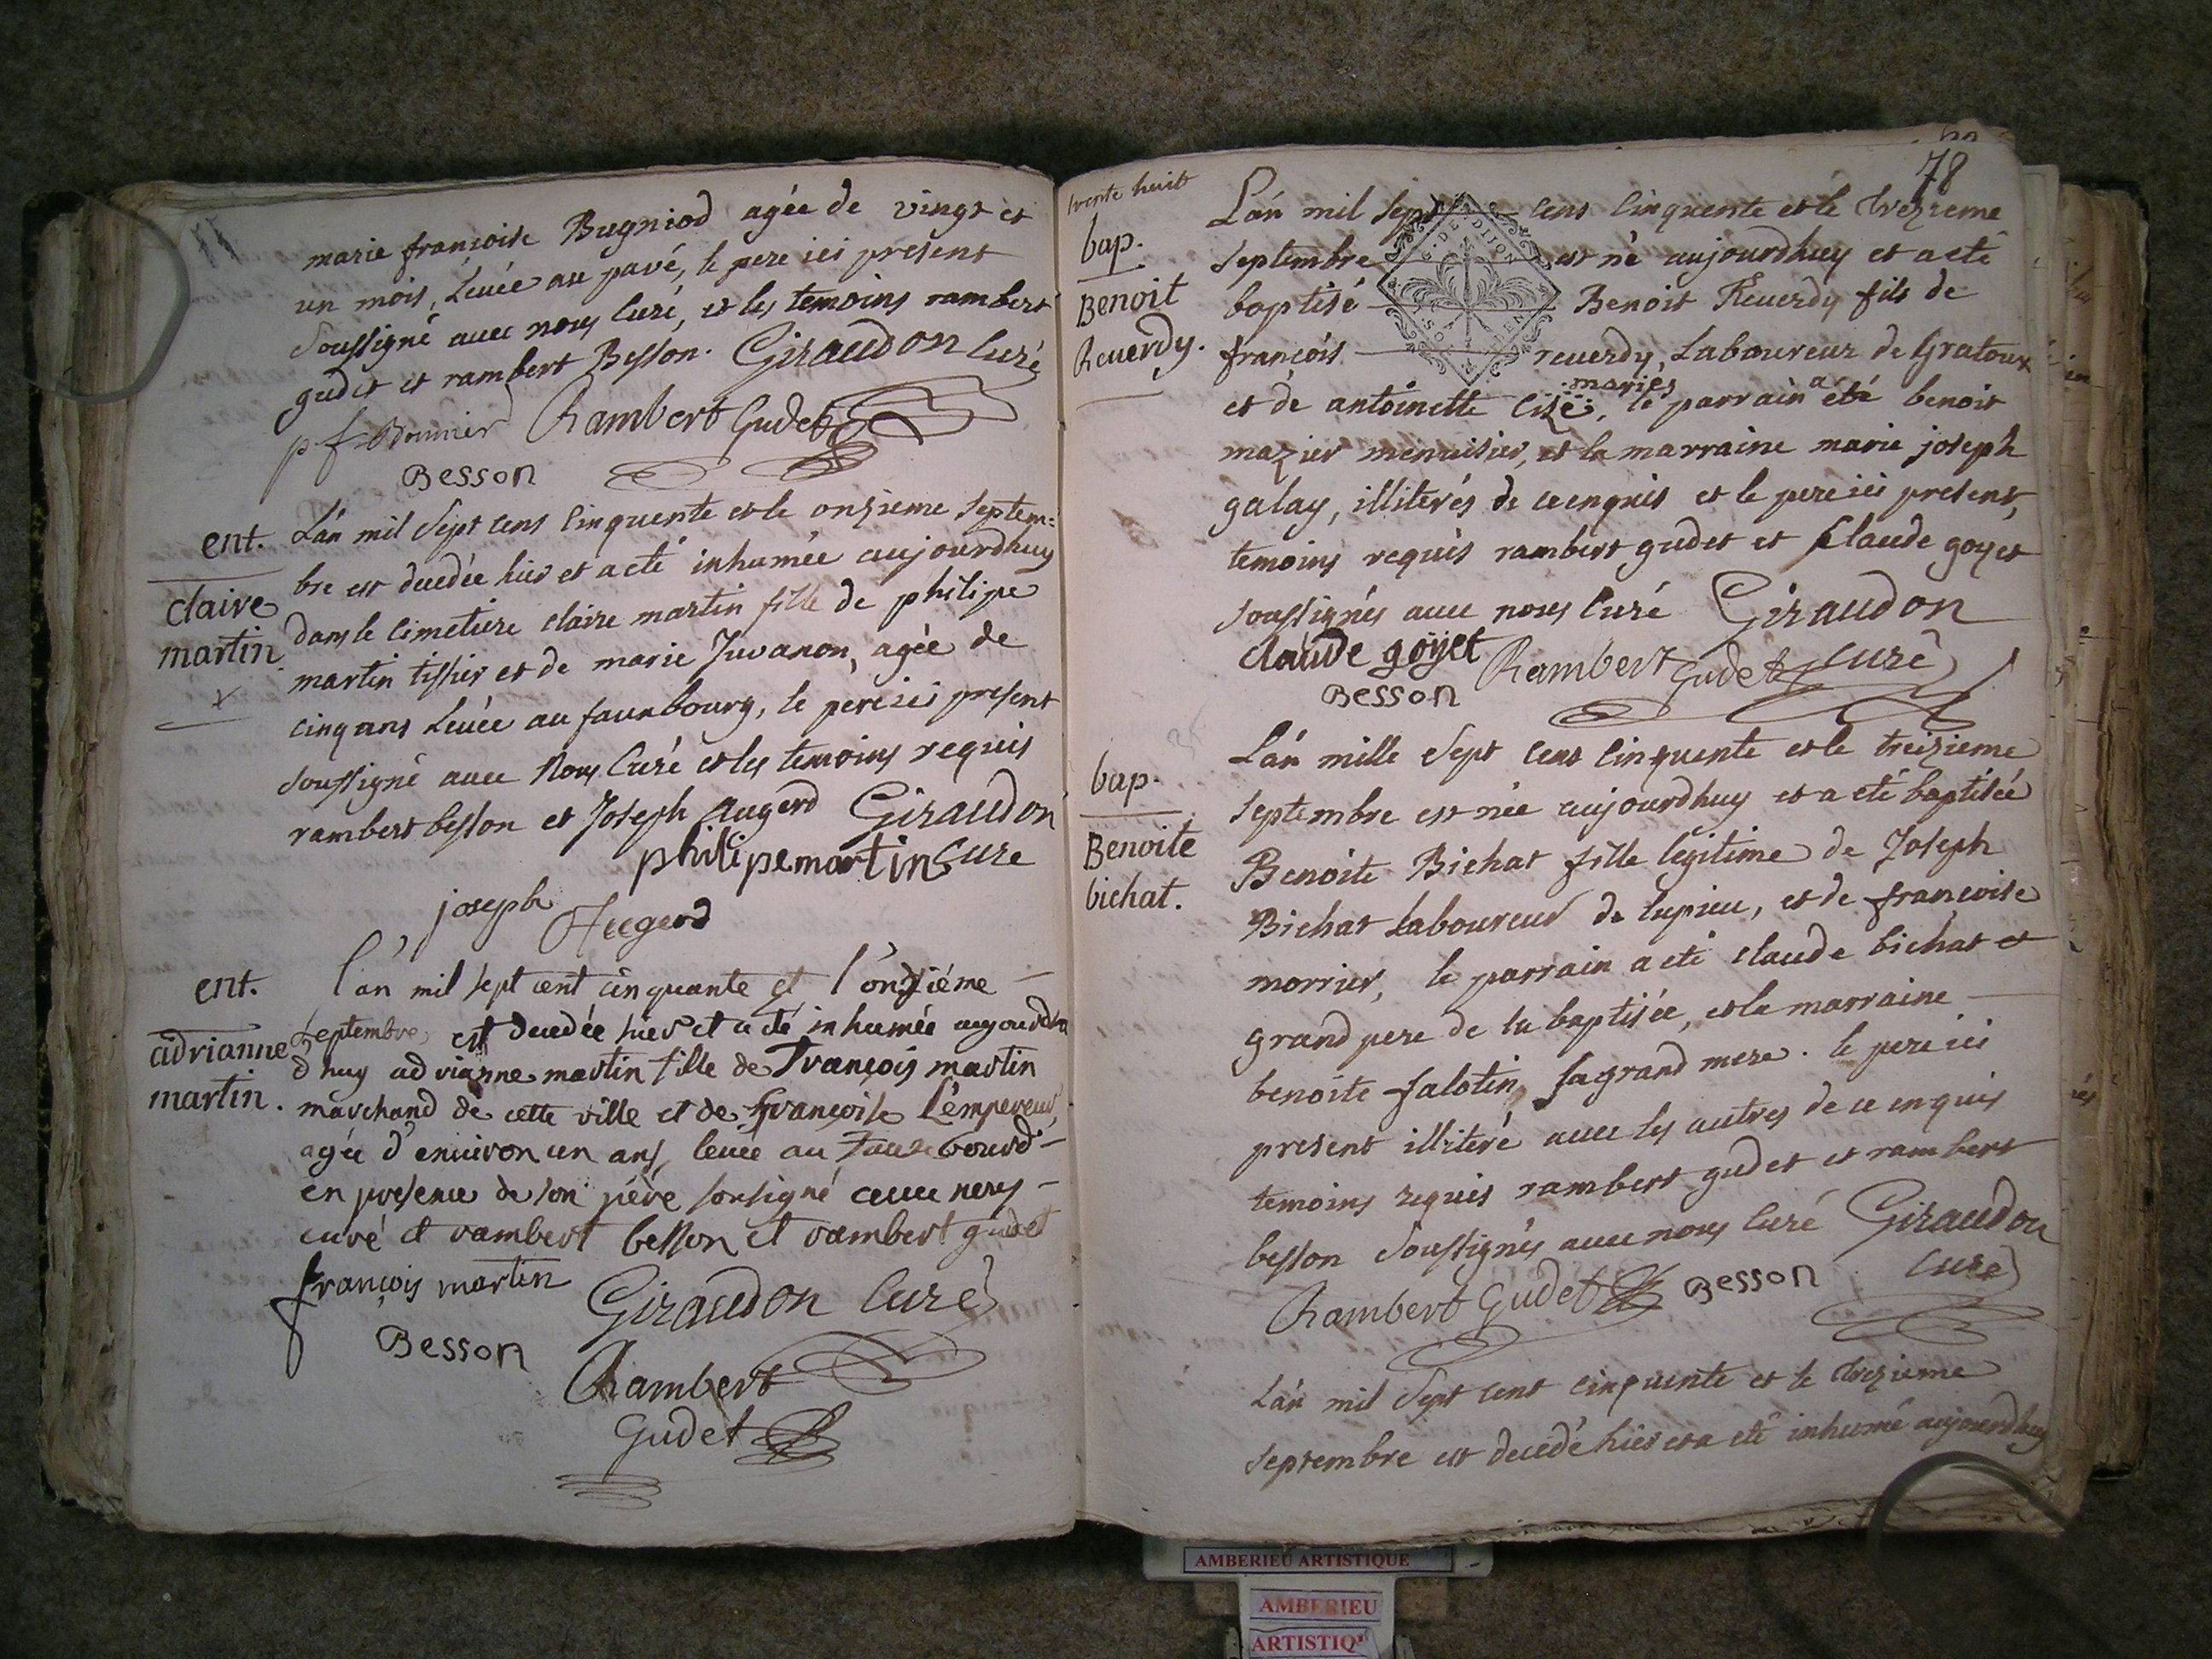 marie françoise Bugniod agée de vingt et
un mois, Levée au pavé, le pere ici present
soussigné avec nous Curé, et les temoins rambert
gudet et rambert Besson. Giraudon Curé
Rambert Gudet
Besson
ent.
claire
martin
L'an mil sept cens cinquente et le onzieme septem=
bre est decedée hier et a eté inhumée aujourdhuy
dans le cimetiere claire martin fille de philipe
martin tissier et de marie Juvanon, agée de
cinq ans Levée au fauxbourg, le pere ici present
soussigné avec Nous Curé et les temoins requis
rambert besson et Joseph Augerd Giraudon
philipe martin Curé
joseph
Augerd
ent.
adrianne
martin.
l'an mil sept cent cinquante et l'onziéme
septembre est decedée hier et a eté inhumée aujourd
d'huy adrianne martin fille de François martin
marchand de cette ville et de Françoise L'empereur
agée d'environ un ans, levée au
en presence de son père sousigné avec nous
curé et rambert besson et rambert gudet
françois martin
Giraudon Curé
Besson
Rambert
Gudet
78
trente huit
bap.
Benoit
Reverdy.
L'an mil sept cens cinquente et le treizieme
septembre est né aujourdhuy et a eté
G. DE DIJON
baptisé Benoit Reverdy fils de
françois reverdy, Laboureur de Gratoux
mariés a
et de antoinette lizé, le parrain eté benoit
mazier menuisier, et la marraine marie joseph
galay, illiterés de ce enquis et le pere ici present,
temoins requis rambert gudet et Claude goyet
soussignés avec nous Curé Giraudon
claude goyet Rambert Gudet Curé
Besson
bap.
Benoite
bichat.
L'an mille sept cens cinquente et le treizieme
septembre est née aujourdhuy et a eté baptisée
Benoite Bichat fille légitime de Joseph
Bichat Laboureur de lupieu, et de françoise
morrier, le parrain a eté claude bichat et
grand pere de la baptisée, et la marraine
benoite falotin, sa grand mere. le pere ici
present illiteré avec les autres de ce enquis
temoins requis rambert gudet et rambert
besson soussignés avec nous Curé Giraudon
Curé
Rambert Gudet Besson
L'an mil sept cent cinquente et le treizieme
septembre est decedé hier et a eté inhumé aujourdhuy
AMBERIEU ARTISTIQUE
AMBERIEU
ARTISTIQ